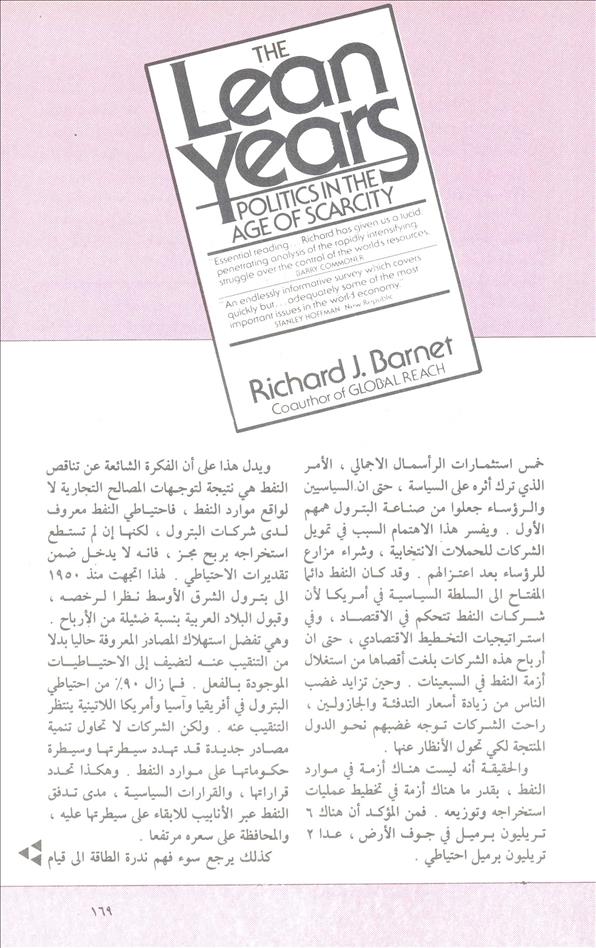 THE
Lean
Years
POLITICS IN THE
AGE OF SCARCITY
Essential reading... Richard has given us a lucid
penetrating analysis of the rapidly intensifying
struggle over the control of the world's resources.
BARRY COMMONER
An endlessly informative survey which covers
quickly but... adequately some of the most
important issues in the world economy.
STANLEY HOFFMAN New Republic
Richard J. Barnet
Coauthor of GLOBAL REACH
خمس استثمارات الرأسمال الاجمالي ، الأمر
الذي ترك أثره على السياسة ، حتى ان السياسيين
والرؤساء جعلوا من صناعة البترول همهم
الأول . ويفسر هذا الاهتمام السبب في تمويل
الشركات للحملات الانتخابية ، وشراء مزارع
للرؤساء بعد اعتزالهم . وقد كان النفط دائما
المفتاح الى السلطة السياسية في أمريكا لأن
شركات النفط تتحكم في الاقتصاد ، وفي
استراتيجيات التخطيط الاقتصادي ، حتى ان
أرباح هذه الشركات بلغت أقصاها من استغلال
أزمة النفط في السبعينات . وحين تزايد غضب
الناس من زيادة أسعار التدفئة والجازولين ،
راحت الشركات توجه غضبهم نحو الدول
المنتجة لكي تحول الأنظار عنها .
والحقيقة أنه ليست هناك أزمة في موارد
النفط ، بقدر ما هناك أزمة في تخطيط عمليات
استخراجه وتوزيعه . فمن المؤكد أن هناك ٦
تريليون برميل في جوف الأرض ، عدا ٢
تريليون برميل احتياطي .
ويدل هذا على أن الفكرة الشائعة عن تناقص
النفط هي نتيجة لتوجهات المصالح التجارية لا
لواقع موارد النفط ، فاحتياطي النفط معروف
لدى شركات البترول ، لكنها إن لم تستطع
استخراجه بربح مجز ، فانه لا يدخل ضمن
تقديرات الاحتياطي . لهذا اتجهت منذ ١٩٥٠
الى بترول الشرق الأوسط نظرا لرخصه ،
وقبول البلاد العربية بنسبة ضئيلة من الأرباح .
وهي تفضل استهلاك المصادر المعروفة حاليا بدلا
من التنقيب عنه لتضيف إلى الاحتياطيات
الموجودة بالفعل . فما زال ٩٠٪ من احتياطي
البترول في أفريقيا وآسيا وأمريكا اللاتينية ينتظر
التنقيب عنه . ولكن الشركات لا تحاول تنمية
مصادر جديدة قد تهدد سيطرتها وسيطرة
حكوماتها على موارد النفط . وهكذا تحدد
قراراتها ، والقرارات السياسية ، مدى تدفق
النفط عبر الأنابيب للابقاء على سيطرتها عليه ،
والمحافظة على سعره مرتفعا .
كذلك يرجع سوء فهم ندرة الطاقة الى قيام
١٦٩